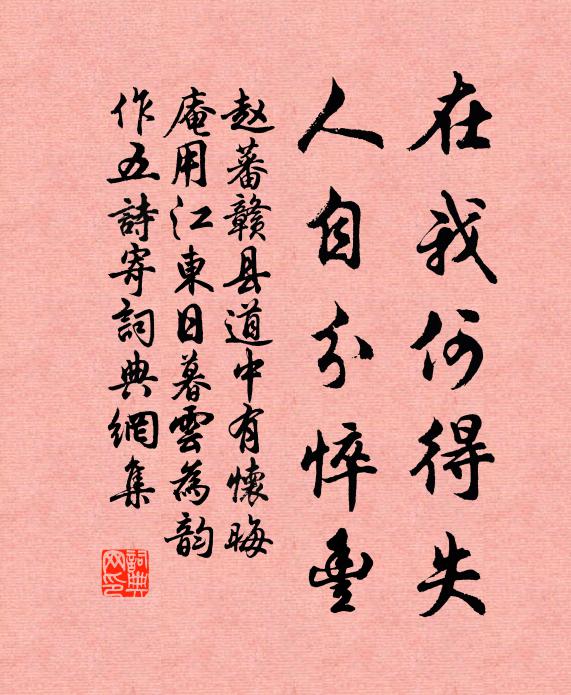 在我何得失
人自分悴豊
赵蕃贛县道中有懷晦
庵用江東日暮雲為韵
作五詩寄詞典網集
詞典网印